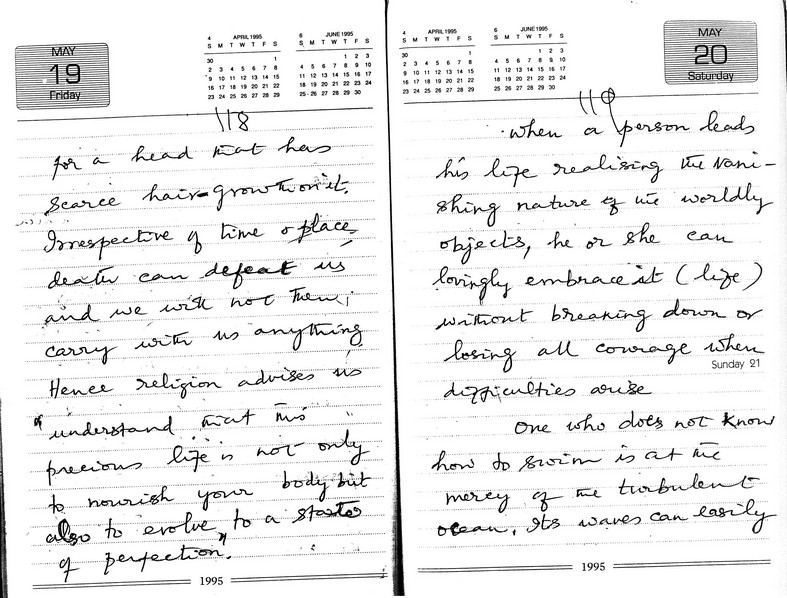 MAY
19
Friday
4 APRIL 1995
S M T W T F S
30 1
2 3 4 5 6 7 8
9 10 11 12 13 14 15
16 17 18 19 20 21 22
23 24 25 26 27 28 29
6 JUNE 1995
S M T W T F S
1 2 3
4 5 6 7 8 9 10
11 12 13 14 15 16 17
18 19 20 21 22 23 24
25 26 27 28 29 30
118
for a head that has
scarce hair-growth on it.
Irrespective of time & place,
death can defeat us
and we will not then,
carry with us anything
Hence religion advises us
"understand that this
precious life is not only
to nourish your body but
also to evolve to a state
of perfection".
1995
4 APRIL 1995
S M T W T F S
30 1
2 3 4 5 6 7 8
9 10 11 12 13 14 15
16 17 18 19 20 21 22
23 24 25 26 27 28 29
6 JUNE 1995
S M T W T F S
1 2 3
4 5 6 7 8 9 10
11 12 13 14 15 16 17
18 19 20 21 22 23 24
25 26 27 28 29 30
MAY
20
Saturday
119
when a person leads
his life realising the vani-
shing nature of the worldly
objects, he or she can
lovingly embrace it (life)
without breaking down or
losing all courage when
Sunday 21
difficulties arise
One who does not know
how to swim is at the
mercy of the turbulent
ocean. Its waves can easily
1995